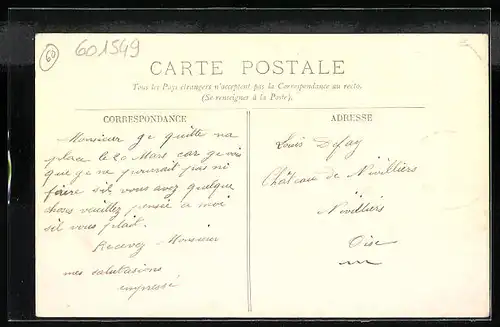 60
601549
CARTE POSTALE
Tous les Pays étrangers n'acceptent pas la Correspondance au recto.
(Se renseigner à la Poste).
CORRESPONDANCE
ADRESSE
Monsieur ge quitte na
place le 20 Mars car ge vois
que ge ne pourrait pas ni
faire sil vous avez quelque
choses veuillez pensée a moi
sil vous plait.
Recevez Monsieur
mes salutasions
empressé
Louis Defay
Château de Nivilliers
Nivilliers
Oise